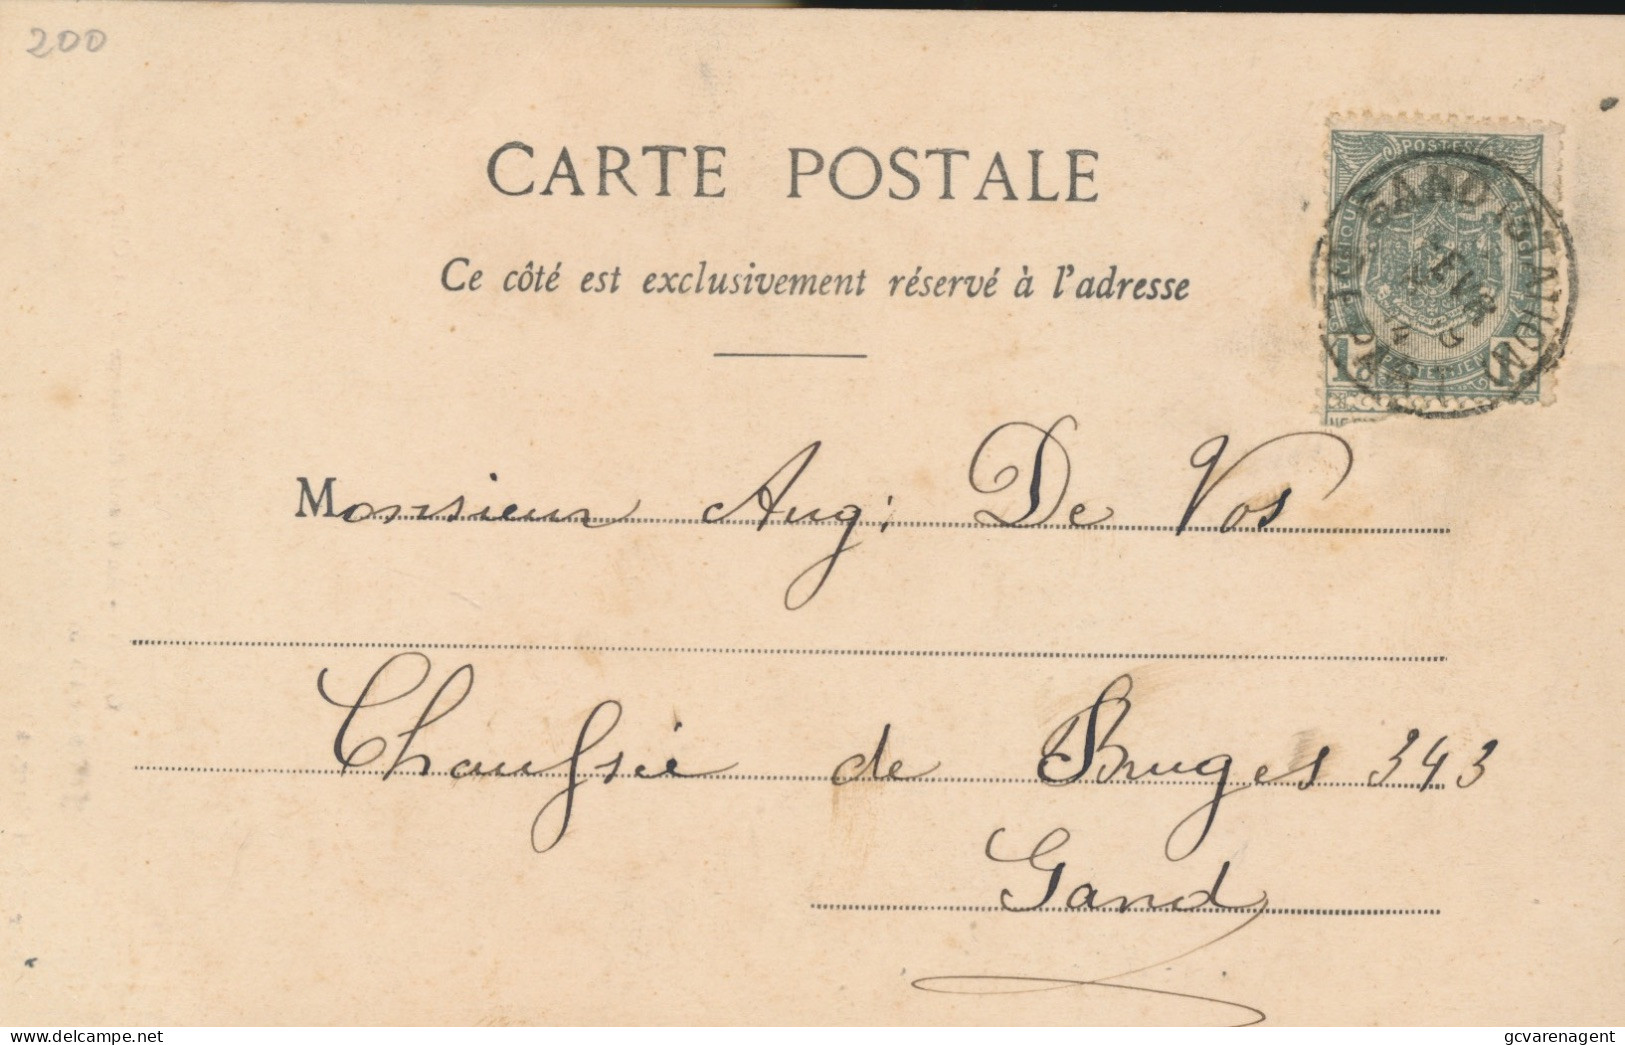 200
CARTE POSTALE
Ce côté est exclusivement réservé à l'adresse
POSTES
GAND (STATION)
1 1
Monsieur Aug: De Vos
Chaussée de Bruges 343
Gand
www.delcampe.net
gcvarenagent